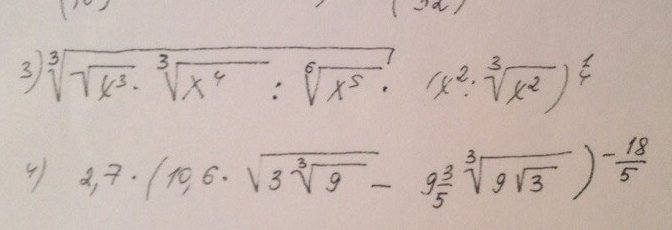 3) ∛(√x³ · ∛x⁴ : ⁶√x⁵) · (x² : ∛x²)^¼
4) 2,7 · (10,6 · √(3∛9) − 9 3/5 ∛(9√3))^(−18/5)